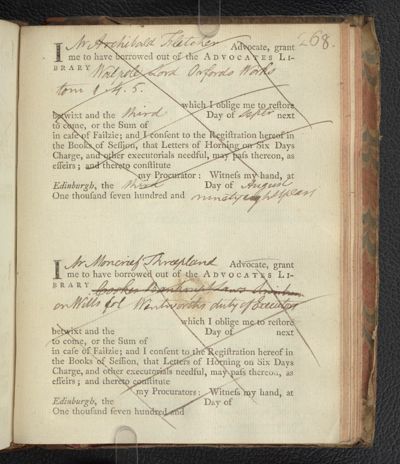 268.
I Mr Archibald Fletcher Advocate, grant
me to have borrowed out of the ADVOCATES LI-
BRARY Walpole Lord Orfords Works
tom 1. 4. 5.
which I oblige me to restore
betwixt and the third Day of Septr next
to come, or the Sum of
in case of Failzie; and I consent to the Registration hereof in
the Books of Session, that Letters of Horning on Six Days
Charge, and other executorials needful, may pass thereon, as
effeirs; and thereto constitute
my Procurator: Witness my hand, at
Edinburgh, the third Day of August
One thousand seven hundred and ninety eight years
I Mr Moncrief Threipland Advocate, grant
me to have borrowed out of the ADVOCATES LI-
BRARY Cookes Bankrupt Laws
on Wills fol Wentworths duty of Executor
which I oblige me to restore
betwixt and the Day of next
to come, or the Sum of
in case of Failzie; and I consent to the Registration hereof in
the Books of Session, that Letters of Horning on Six Days
Charge, and other executorials needful, may pass thereon, as
effeirs; and thereto constitute
my Procurators: Witness my hand, at
Edinburgh, the Day of
One thousand seven hundred and